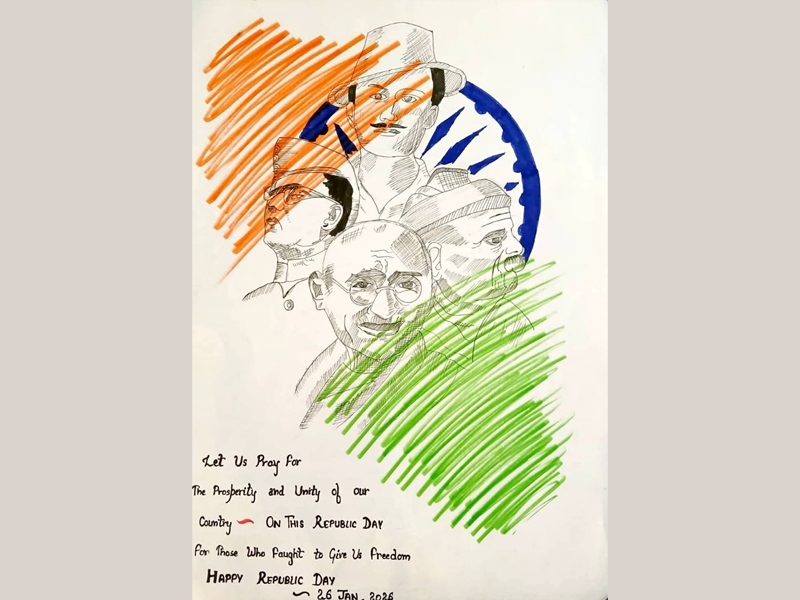 Let Us Pray For
The Prosperity and Unity of our
Country ~ ON THIS REPUBLIC DAY
For Those Who Faught to Give Us Freedom
HAPPY REPUBLIC DAY
~ 26 JAN, 2026